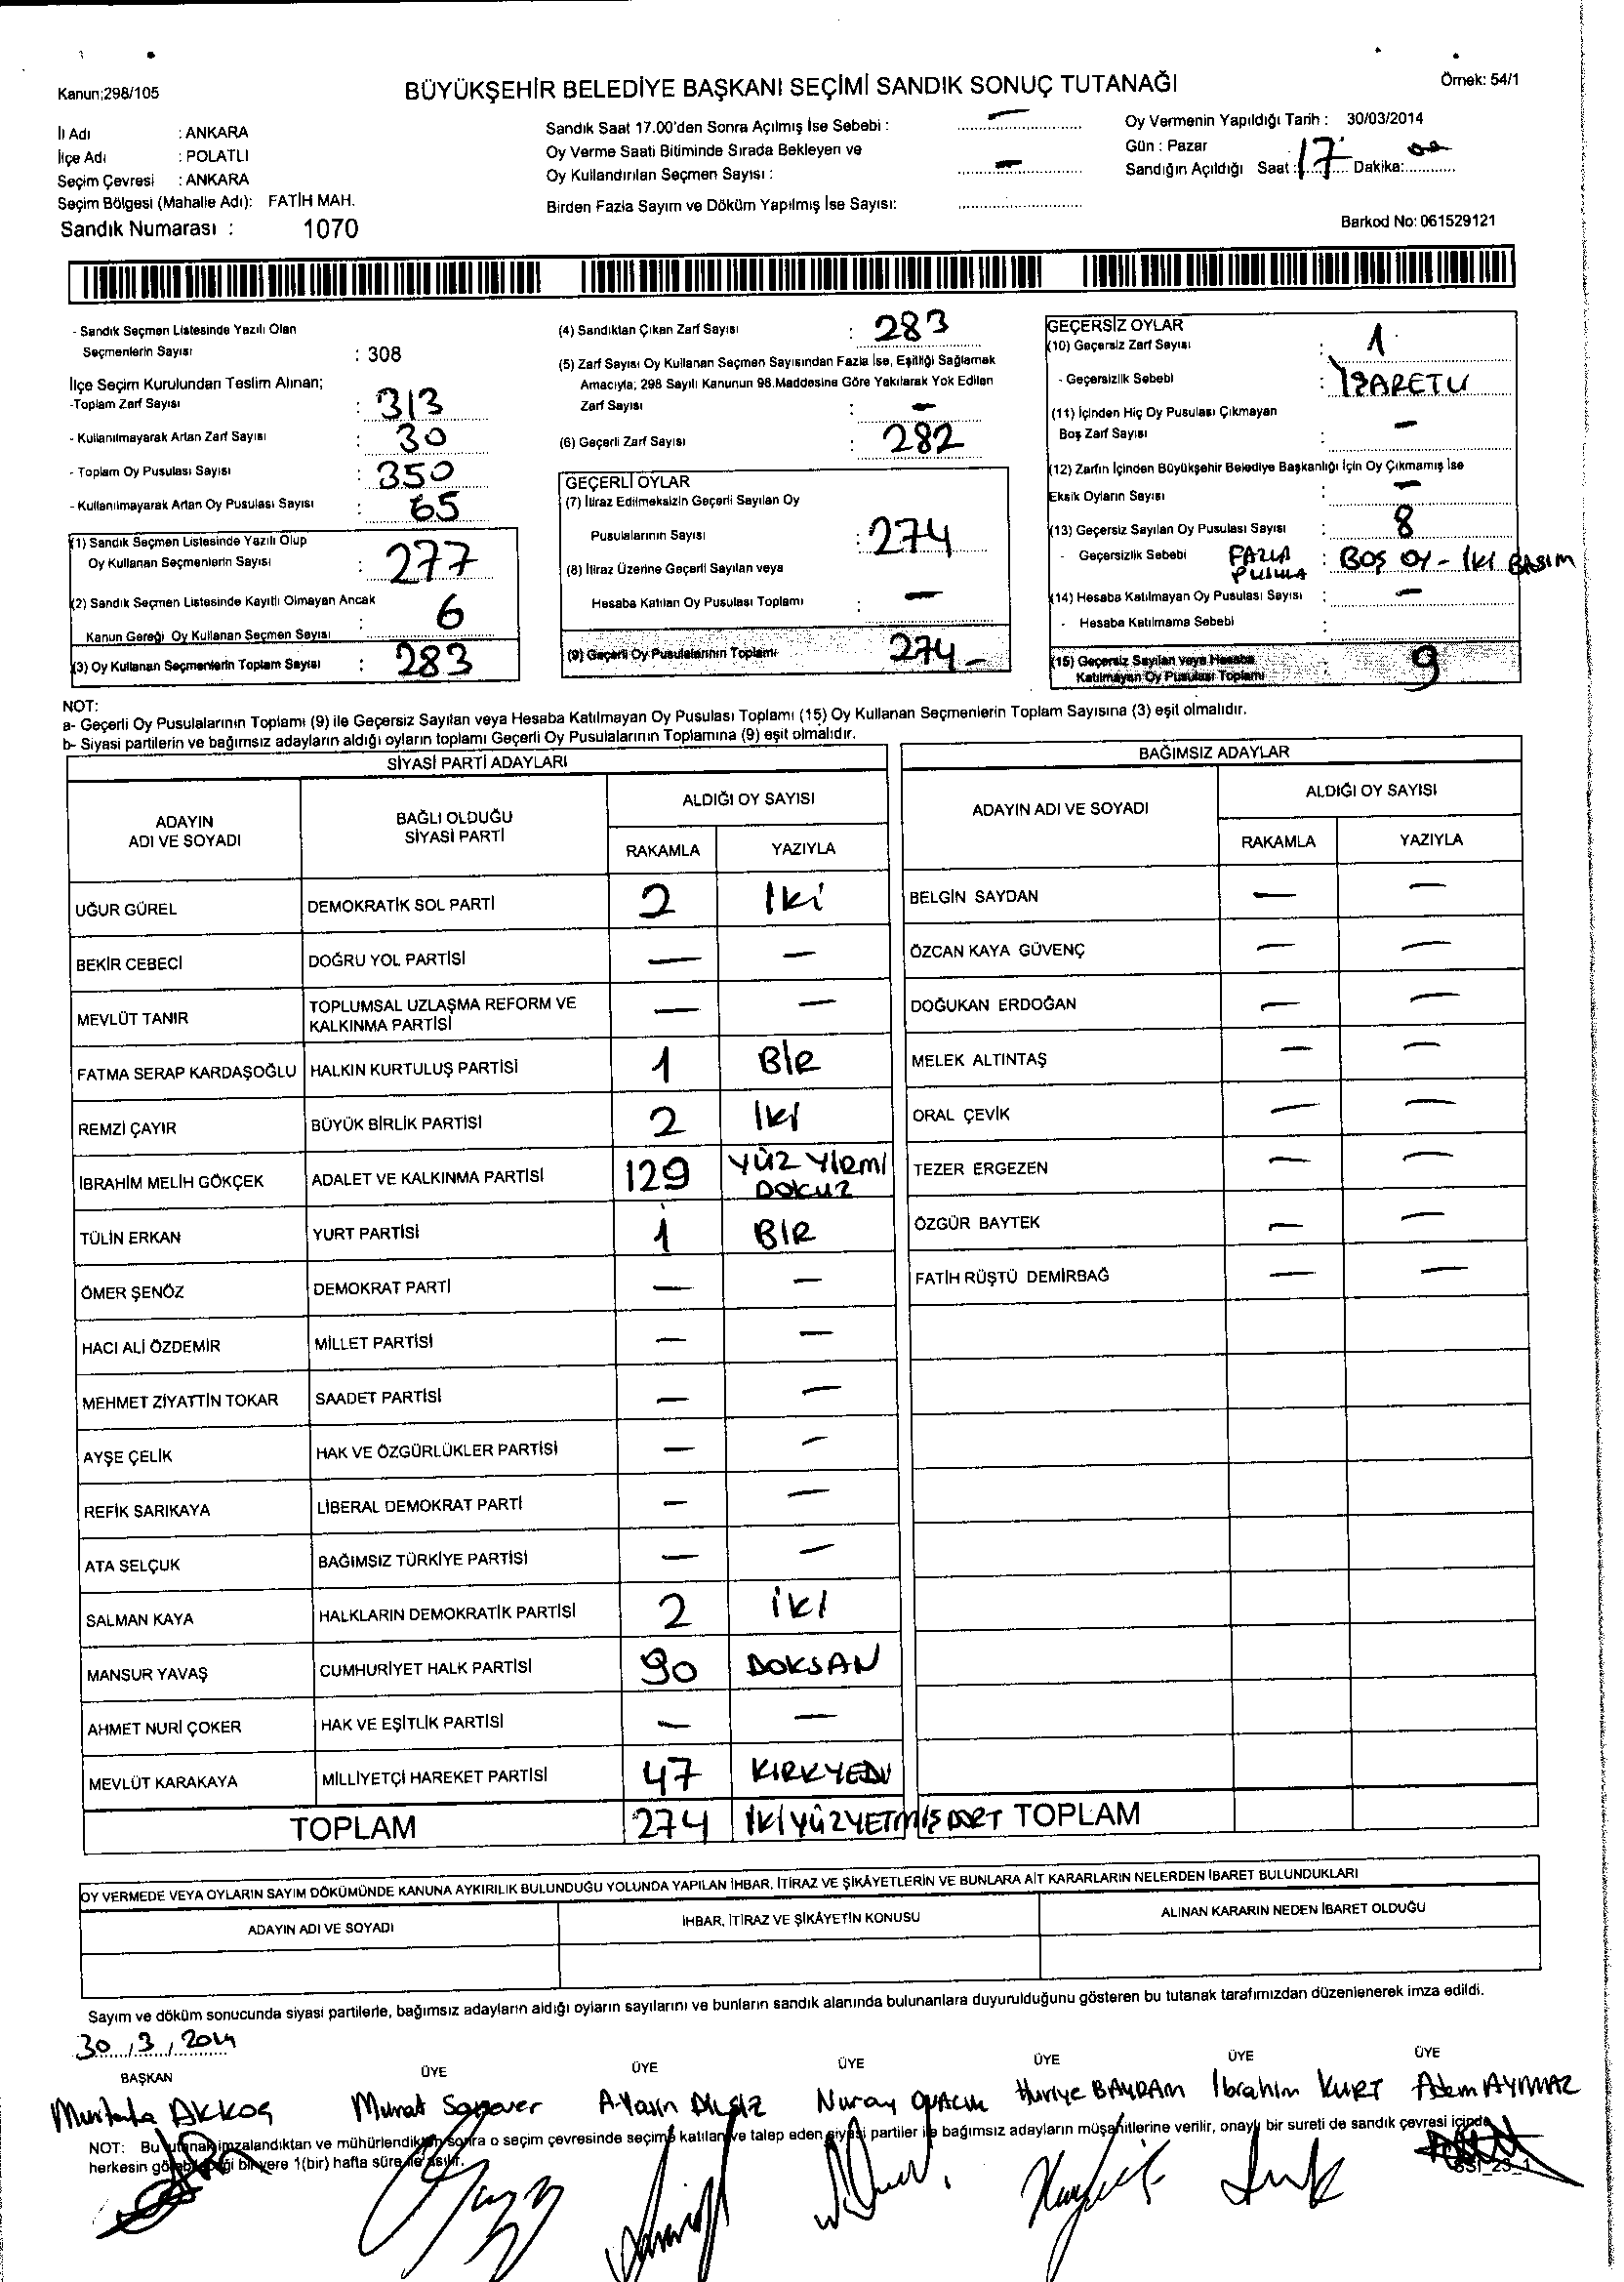 Kanun;298/105
BÜYÜKŞEHİR BELEDİYE BAŞKANI SEÇİMİ SANDIK SONUÇ TUTANAĞI
Örnek: 54/1
İl Adı : ANKARA
İlçe Adı : POLATLI
Seçim Çevresi : ANKARA
Seçim Bölgesi (Mahalle Adı): FATİH MAH.
Sandık Numarası : 1070
Sandık Saat 17.00'den Sonra Açılmış İse Sebebi : —
Oy Verme Saati Bitiminde Sırada Bekleyen ve
Oy Kullandırılan Seçmen Sayısı : —
Birden Fazla Sayım ve Döküm Yapılmış İse Sayısı:
Oy Vermenin Yapıldığı Tarih : 30/03/2014
Gün : Pazar
Sandığın Açıldığı Saat : 17 Dakika: 00
Barkod No: 061529121
- Sandık Seçmen Listesinde Yazılı Olan
Seçmenlerin Sayısı : 308
İlçe Seçim Kurulundan Teslim Alınan;
-Toplam Zarf Sayısı : 313
- Kullanılmayarak Artan Zarf Sayısı : 30
- Toplam Oy Pusulası Sayısı : 350
- Kullanılmayarak Artan Oy Pusulası Sayısı : 65
(1) Sandık Seçmen Listesinde Yazılı Olup
Oy Kullanan Seçmenlerin Sayısı : 277
(2) Sandık Seçmen Listesinde Kayıtlı Olmayan Ancak
Kanun Gereği Oy Kullanan Seçmen Sayısı : 6
(3) Oy Kullanan Seçmenlerin Toplam Sayısı : 283
(4) Sandıktan Çıkan Zarf Sayısı : 283
(5) Zarf Sayısı Oy Kullanan Seçmen Sayısından Fazla İse, Eşitliği Sağlamak
Amacıyla; 298 Sayılı Kanunun 98.Maddesine Göre Yakılarak Yok Edilen
Zarf Sayısı : —
(6) Geçerli Zarf Sayısı : 282
GEÇERLİ OYLAR
(7) İtiraz Edilmeksizin Geçerli Sayılan Oy
Pusulalarının Sayısı : 274
(8) İtiraz Üzerine Geçerli Sayılan veya
Hesaba Katılan Oy Pusulası Toplamı : —
(9) Geçerli Oy Pusulalarının Toplamı 274 -
GEÇERSİZ OYLAR
(10) Geçersiz Zarf Sayısı : 1
- Geçersizlik Sebebi : İŞARETLİ
(11) İçinden Hiç Oy Pusulası Çıkmayan
Boş Zarf Sayısı : —
(12) Zarfın İçinden Büyükşehir Belediye Başkanlığı İçin Oy Çıkmamış İse
Eksik Oyların Sayısı : —
(13) Geçersiz Sayılan Oy Pusulası Sayısı : 8
- Geçersizlik Sebebi FAZLA PUSULA : BOŞ OY - İKİ BASIM
(14) Hesaba Katılmayan Oy Pusulası Sayısı : —
- Hesaba Katılmama Sebebi :
(15) Geçersiz Sayılan veya Hesaba
Katılmayan Oy Pusulası Toplamı : 9
NOT:
a- Geçerli Oy Pusulalarının Toplamı (9) ile Geçersiz Sayılan veya Hesaba Katılmayan Oy Pusulası Toplamı (15) Oy Kullanan Seçmenlerin Toplam Sayısına (3) eşit olmalıdır.
b- Siyasi partilerin ve bağımsız adayların aldığı oyların toplamı Geçerli Oy Pusulalarının Toplamına (9) eşit olmalıdır.
SİYASİ PARTİ ADAYLARI
ADAYIN ADI VE SOYADI BAĞLI OLDUĞU SİYASİ PARTİ ALDIĞI OY SAYISI
RAKAMLA YAZIYLA
UĞUR GÜREL DEMOKRATİK SOL PARTİ 2 İki
BEKİR CEBECİ DOĞRU YOL PARTİSİ — —
MEVLÜT TANIR TOPLUMSAL UZLAŞMA REFORM VE KALKINMA PARTİSİ — —
FATMA SERAP KARDAŞOĞLU HALKIN KURTULUŞ PARTİSİ 1 BİR
REMZİ ÇAYIR BÜYÜK BİRLİK PARTİSİ 2 İki
İBRAHİM MELİH GÖKÇEK ADALET VE KALKINMA PARTİSİ 129 YÜZ YİRMİ DOKUZ
TÜLİN ERKAN YURT PARTİSİ 1 BİR
ÖMER ŞENÖZ DEMOKRAT PARTİ — —
HACI ALİ ÖZDEMİR MİLLET PARTİSİ — —
MEHMET ZİYATTİN TOKAR SAADET PARTİSİ — —
AYŞE ÇELİK HAK VE ÖZGÜRLÜKLER PARTİSİ — —
REFİK SARIKAYA LİBERAL DEMOKRAT PARTİ — —
ATA SELÇUK BAĞIMSIZ TÜRKİYE PARTİSİ — —
SALMAN KAYA HALKLARIN DEMOKRATİK PARTİSİ 2 İKİ
MANSUR YAVAŞ CUMHURİYET HALK PARTİSİ 90 DOKSAN
AHMET NURİ ÇOKER HAK VE EŞİTLİK PARTİSİ — —
MEVLÜT KARAKAYA MİLLİYETÇİ HAREKET PARTİSİ 47 KIRKYEDİ
TOPLAM 274 İKİYÜZYETMİŞ DÖRT
BAĞIMSIZ ADAYLAR
ADAYIN ADI VE SOYADI ALDIĞI OY SAYISI
RAKAMLA YAZIYLA
BELGİN SAYDAN — —
ÖZCAN KAYA GÜVENÇ — —
DOĞUKAN ERDOĞAN — —
MELEK ALTINTAŞ — —
ORAL ÇEVİK — —
TEZER ERGEZEN — —
ÖZGÜR BAYTEK — —
FATİH RÜŞTÜ DEMİRBAĞ — —
TOPLAM
OY VERMEDE VEYA OYLARIN SAYIM DÖKÜMÜNDE KANUNA AYKIRILIK BULUNDUĞU YOLUNDA YAPILAN İHBAR, İTİRAZ VE ŞİKÂYETLERİN VE BUNLARA AİT KARARLARIN NELERDEN İBARET BULUNDUKLARI
ADAYIN ADI VE SOYADI İHBAR, İTİRAZ VE ŞİKÂYETİN KONUSU ALINAN KARARIN NEDEN İBARET OLDUĞU
Sayım ve döküm sonucunda siyasi partilerle, bağımsız adayların aldığı oyların sayılarını ve bunların sandık alanında bulunanlara duyurulduğunu gösteren bu tutanak tarafımızdan düzenlenerek imza edildi.
30 / 3 / 2014
BAŞKAN ÜYE ÜYE ÜYE ÜYE ÜYE ÜYE
Mustafa AKKOÇ Murat A.Yasin DİLSİZ Nuray Huriye BAYRAM İbrahim KURT Adem AYMAZ
NOT: Bu tutanak imzalandıktan ve mühürlendikten sonra o seçim çevresinde seçime katılan ve talep eden siyasi partiler ile bağımsız adayların müşahitlerine verilir, onaylı bir sureti de sandık çevresi içinde
herkesin görebileceği bir yere 1(bir) hafta süre ile asılır.